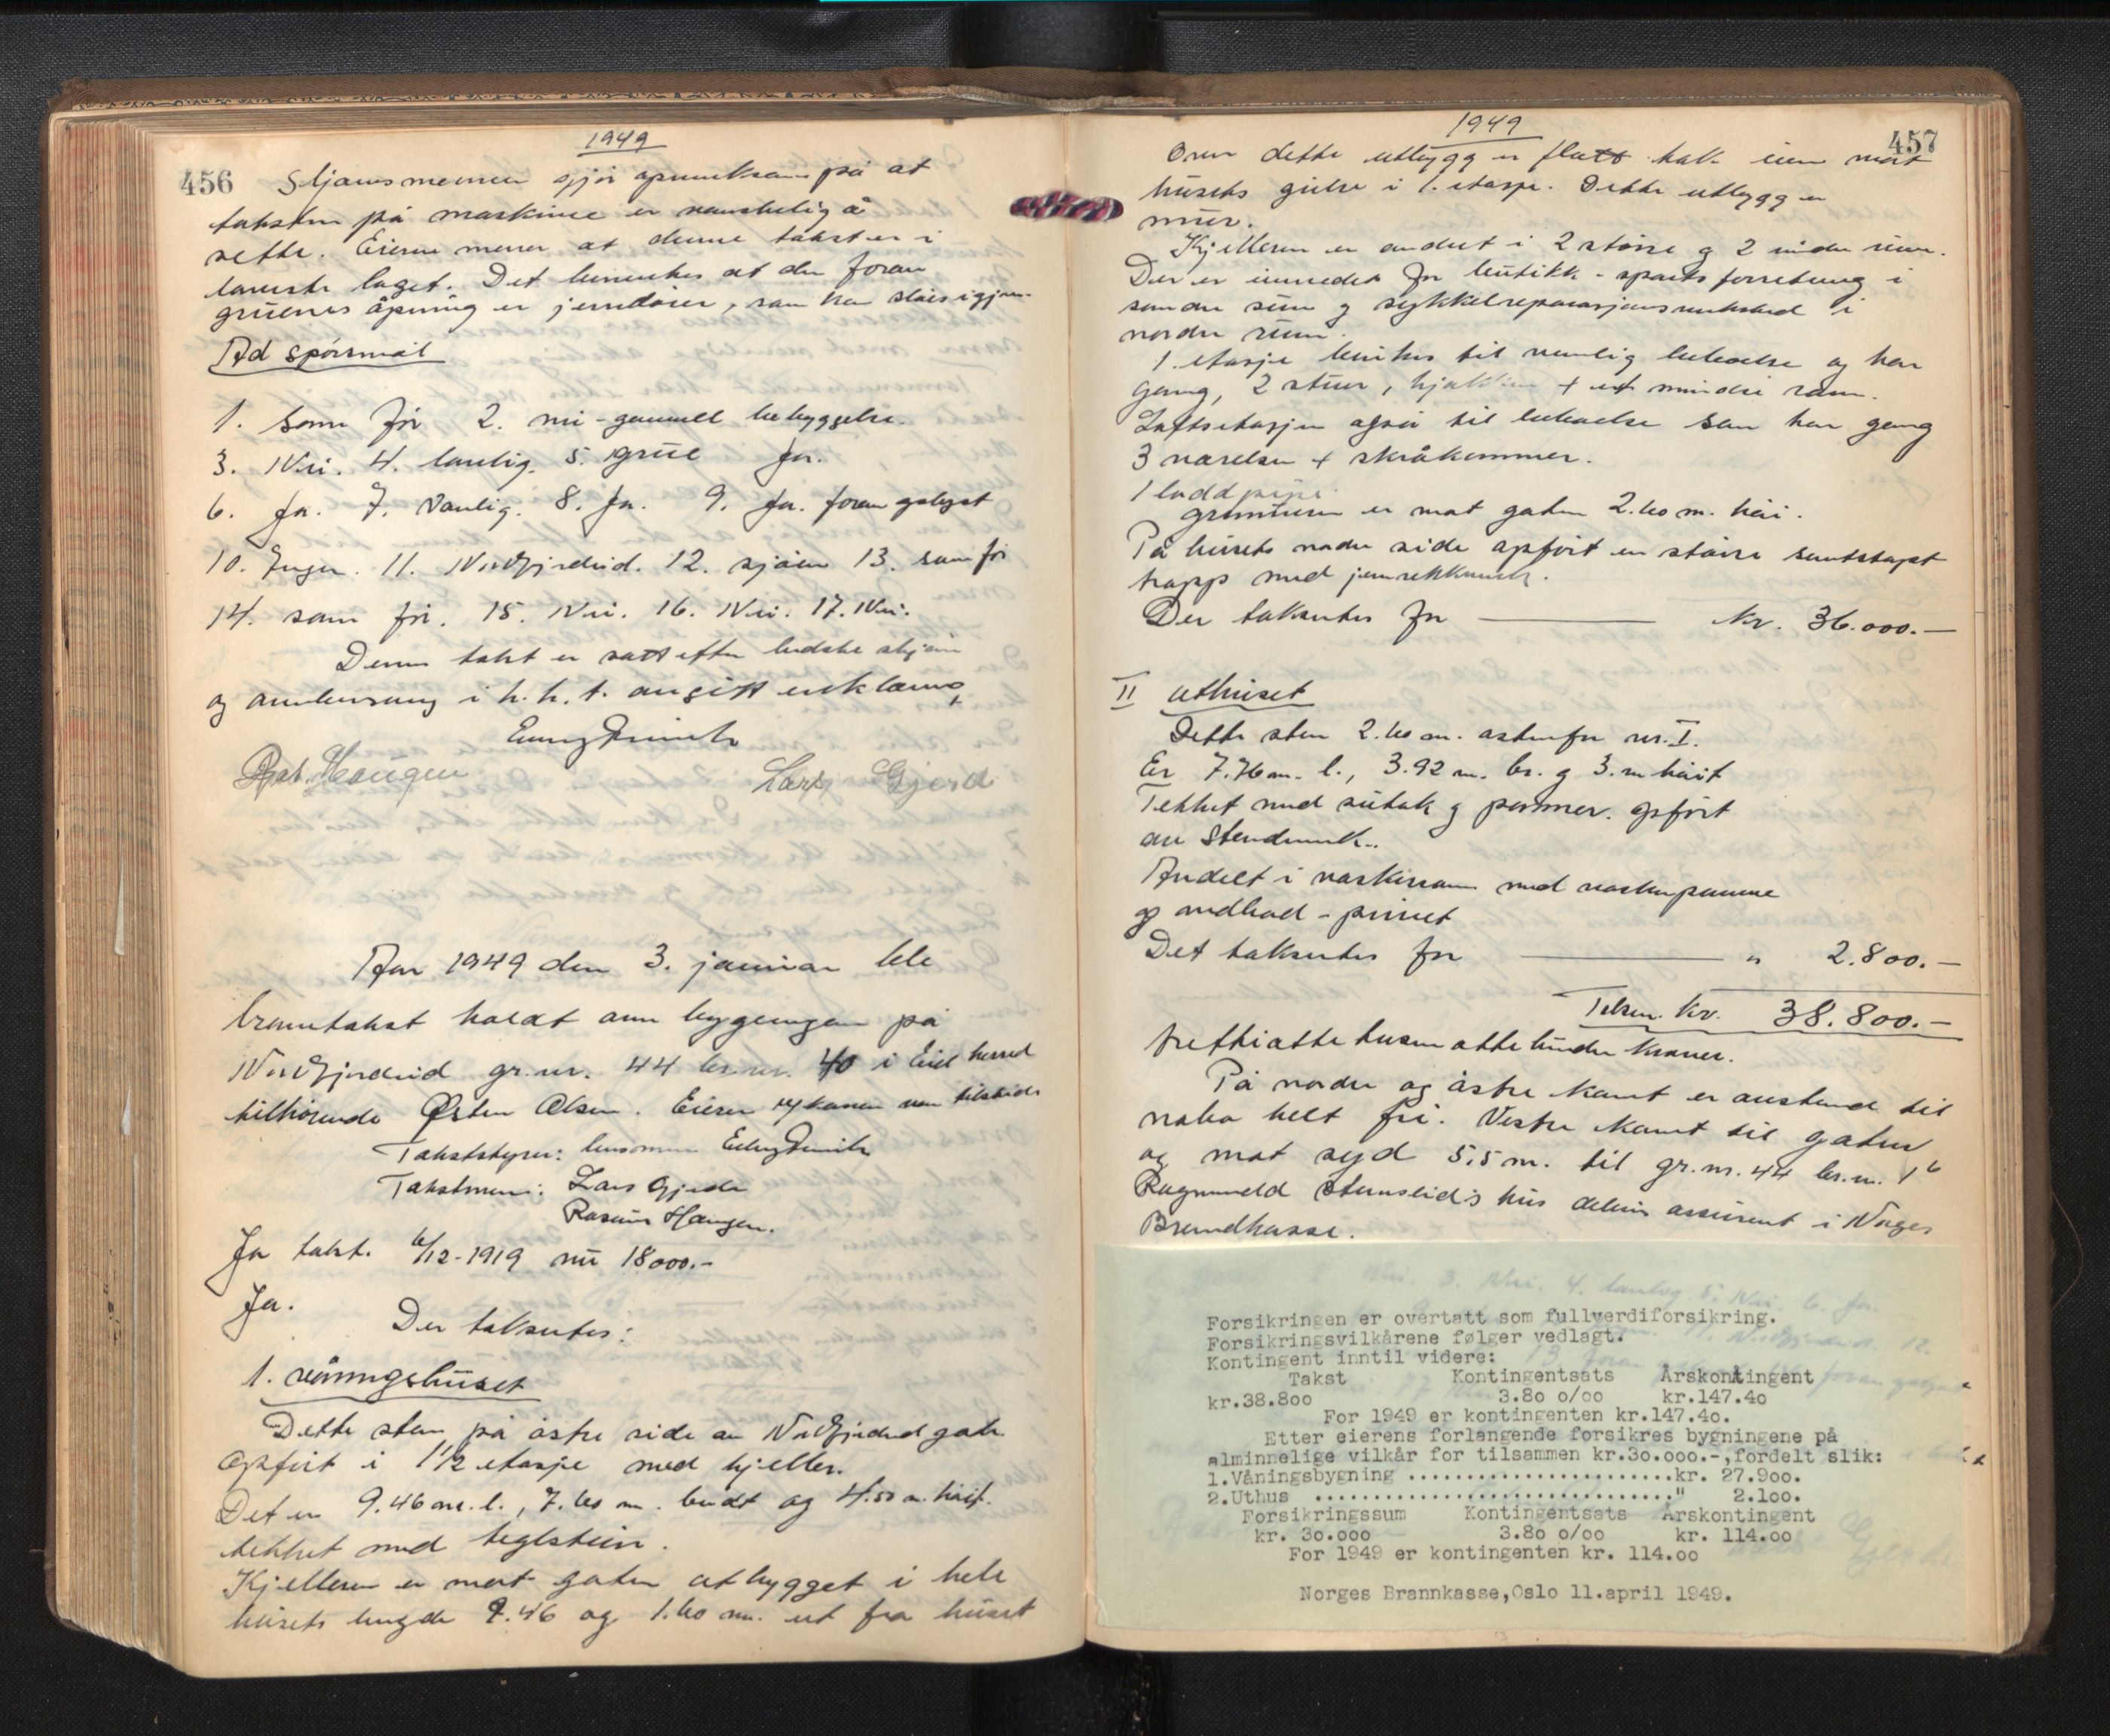 1949
456 Skjønsmennene gjør opmerksam på at
taksten på maskinene er vanskelig å
sette. Eierne mener at denne takst er i
laveste laget. Det bemerkes at der foran
gruenes åpning er jerndører, som kan slåes igjen.
Ad spørsmål
1. Som før 2. ni - gammel bebyggelse.
3. Nei. 4. lanlig. 5. grue Ja.
6. Ja. 7. Vanlig. 8. Ja. 9. Ja. foran oplyst
10. Ingen. 11. Nordfjordeid. 12. sjøen 13. som før
14. som før. 15. Nei. 16. Nei. 17. Nei.
Denne takst er satt efter bedste skjønn
og overbevisning i h. h. t. avgitt erklæring
Ras. Haugen Lars Gjerd
Aar 1949 den 3. januar ble
branntakst holdt over bygningen på
Nordfjordeid gr.nr. 44 br.nr. 40 i Eid herred
tilhørende Østen Olsen. Eieren var tilstede
Takststyrer: lensmann
Takstmenn: Lars Gjerde
Rasmus Haugen.
Ja takst. 6/12-1919 nu 18000.-
Ja.
Der takseres:
1. våningshuset
Dette står på østre side av Nordfjordeid gate.
Opført i 1 1/2 etasje med kjeller.
Det er 9.46 m. l., 7.60 m. bredt og 4.50 m. høit.
tekket med teglstein.
Kjelleren er mot gaten utbygget i hele
husets lengde 9.46 og 1.60 m. ut fra huset
1949
457
Over dette utbygg er flatt tak inn mot
husets gulv i 1. etasje. Dette utbygg er
mur.
Kjelleren er andelt i 2 større og 2 mindre rum.
Der er innredet for butikk - sportsforretning i
søndre rum og sykkelreparasjonsverksted i
nordre rum.
1. etasje brukes til vanlig beboelse og har
gang, 2 stuer, kjøkken + et mindre rum.
Loftsetasjen også til beboelse som har gang
3 værelser + skråkammer.
1 lodd pipe.
grunnmuren er mot gaten 2.60 m. høi.
På husets nordre side opført en større sementstøpt
trapp med jernrekkverk.
Der takseres for kr. 36.000.-
II uthuset
Dette står 2.60 m. østenfor nr. I.
Er 7.76 m. l., 3.92 m. br. og 3. m høit
Tekket med sutak og panner. opført
av stenderverk.
Andelt i vaskerum med vaskepanne
og vedbod - privet
Det takseres for " 2.800.-
Tilsm. kr. 38.800.-
trettiåtte tusen åtte hundre kroner.
På nordre og østre kant er avstand til
nabo helt fri. Vestre kant til gaten
og mot syd 5,5 m. til gr.nr. 44 br.nr. 16
Ragnvald Stenslid's hus delvis assurert i Norges
Brandkasse.
Forsikringen er overtatt som fullverdiforsikring.
Forsikringsvilkårene følger vedlagt.
Kontingent inntil videre:
Takst Kontingentsats Årskontingent
kr.38.800 3.80 o/oo kr.147.40
For 1949 er kontingenten kr.147.40.
Etter eierens forlangende forsikres bygningene på
alminnelige vilkår for tilsammen kr.30.000.-,fordelt slik:
1.Våningsbygning ........................kr. 27.900.
2.Uthus ................................" 2.100.
Forsikringssum Kontingentsats Årskontingent
kr. 30.000 3.80 o/oo kr. 114.00
For 1949 er kontingenten kr. 114.00
Norges Brannkasse,Oslo 11.april 1949.